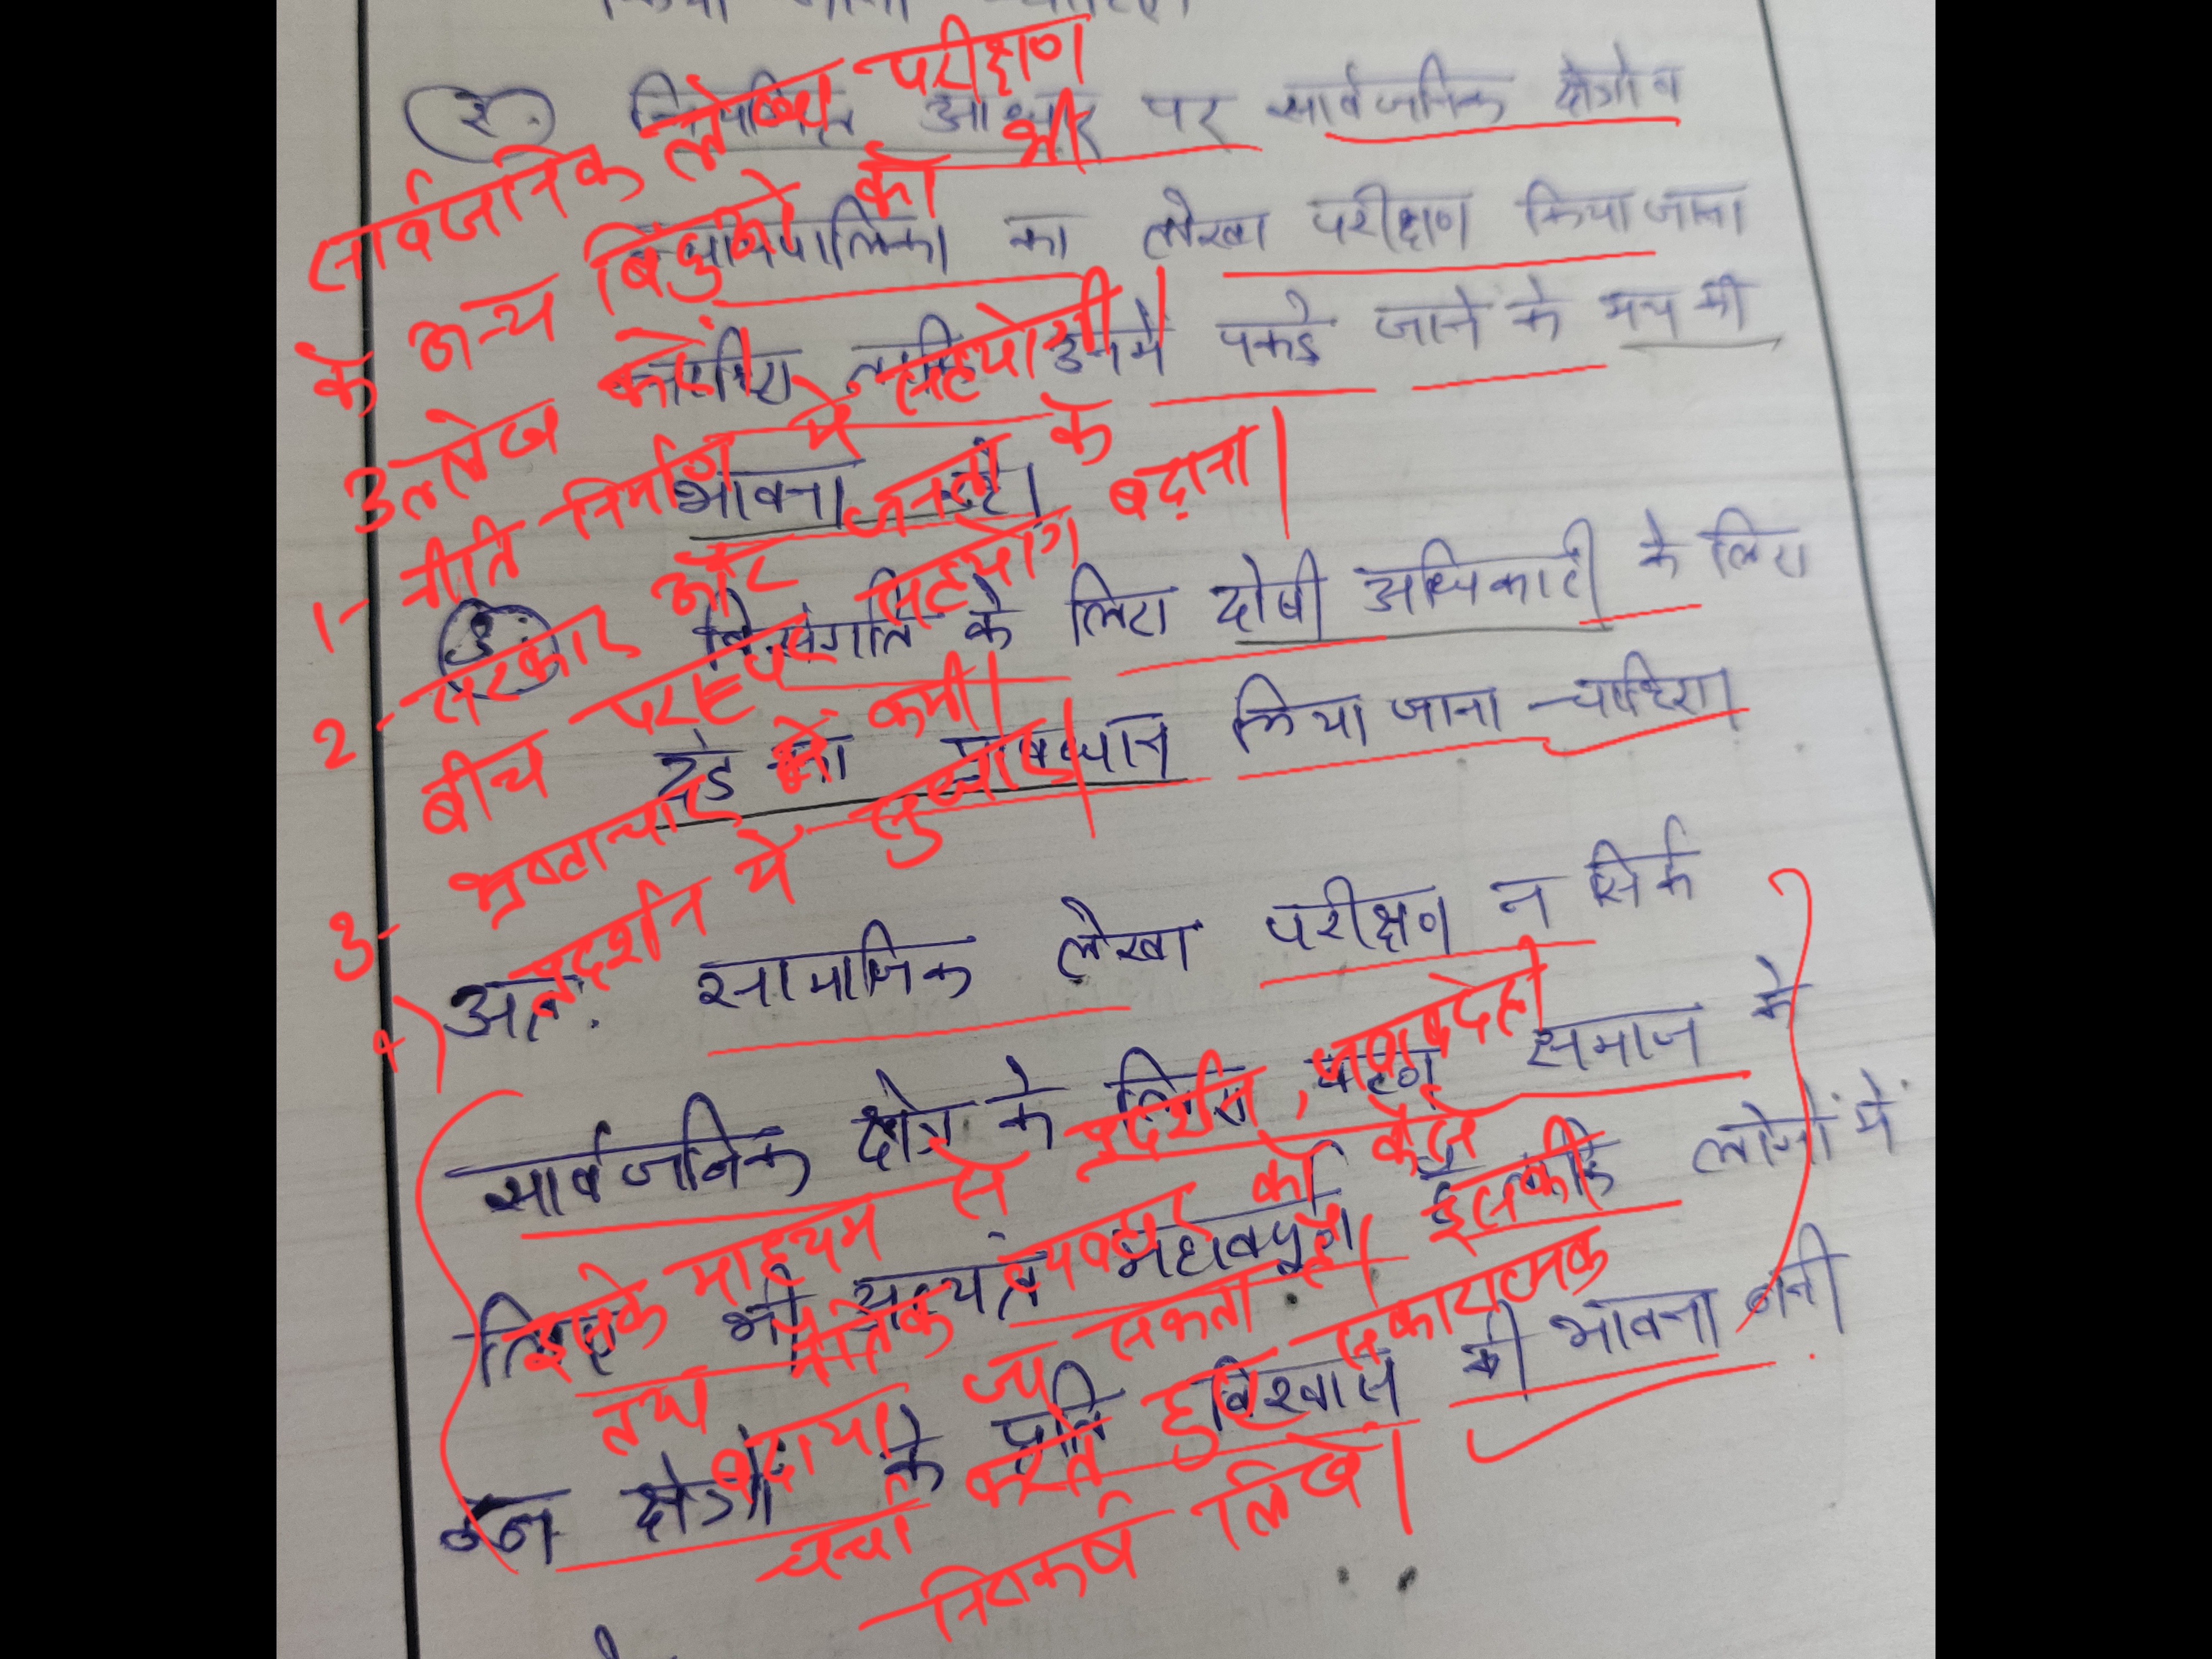 किया जाना चाहिए।
२. नियमित आधार पर सार्वजनिक क्षेत्रों व
न्यायपालिका का लेखा परीक्षण किया जाना
चाहिए ताकि उनमें पकड़े जाने के भय की
भावना रहे।
3. विसंगति के लिए दोषी अधिकारी के लिए
दंड का प्रावधान किया जाना चाहिए।
अतः सामाजिक लेखा परीक्षण न सिर्फ
सार्वजनिक क्षेत्र के लिए वरन् समाज के
लिए भी अत्यंत महत्वपूर्ण है ताकि लोगों में
उन क्षेत्रों के प्रति विश्वास की भावना बनी
सार्वजनिक लेखा परीक्षण
के अन्य बिंदुओं का भी
उल्लेख करें।
1- नीति निर्माण में सहयोगी।
2- सरकार और जनता के
बीच परस्पर सहयोग बढ़ाना।
3- भ्रष्टाचार में कमी।
प्रदर्शन में सुधार।
इसके माध्यम से प्रदर्शन, जवाबदेही
तथा नैतिक व्यवहार को कैसे
बढ़ाया जा सकता है। इसकी
चर्चा करते हुए सकारात्मक
निष्कर्ष लिखें।